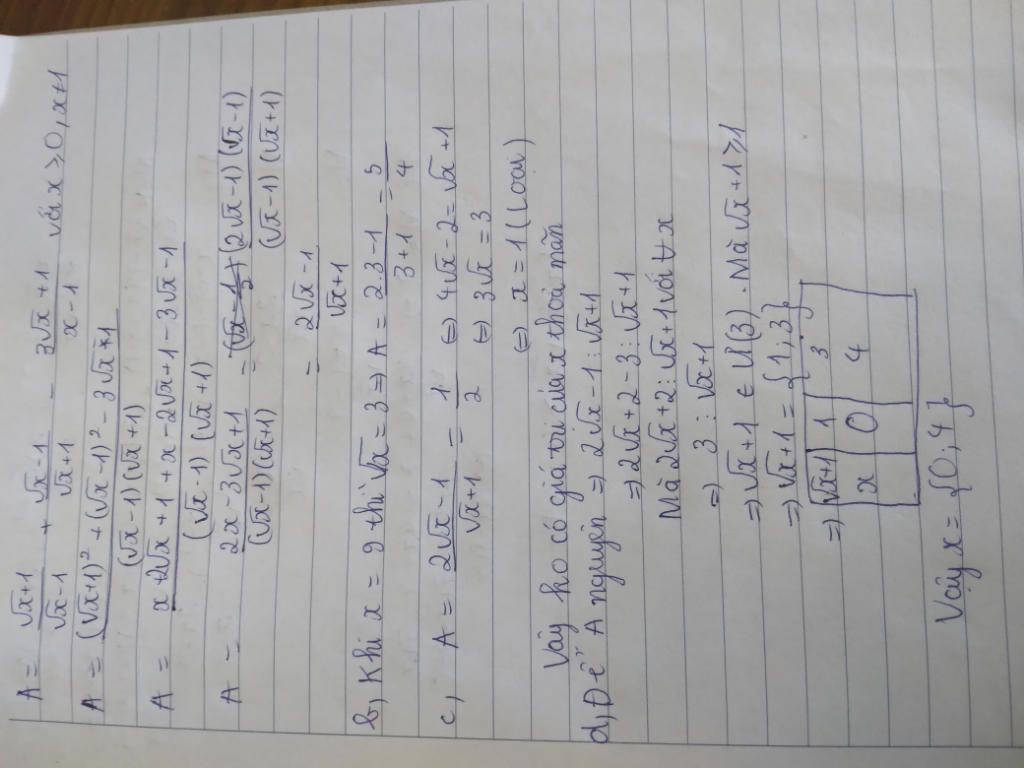 A = (√x+1)/(√x-1) + (√x-1)/(√x+1) - (3√x+1)/(x-1) với x ≥ 0, x ≠ 1
A = ((√x+1)² + (√x-1)² - 3√x+1)/((√x-1)(√x+1))
A = (x+2√x+1+x-2√x+1-3√x-1)/((√x-1)(√x+1))
A = (2x-3√x+1)/((√x-1)(√x+1)) = ((2√x-1)(√x-1))/((√x-1)(√x+1))
= (2√x-1)/(√x+1)
b, Khi x = 9 thì √x = 3 => A = (2.3-1)/(3+1) = 5/4
c, A = (2√x-1)/(√x+1) = 1/2 <=> 4√x-2=√x+1
<=> 3√x = 3
<=> x = 1 (loại)
Vậy ko có giá trị của x thoả mãn
d, Để A nguyên => 2√x-1 ⋮ √x+1
=> 2√x+2-3 ⋮ √x+1
Mà 2√x+2 ⋮ √x+1 với ∀x
=> 3 ⋮ √x+1
=> √x+1 ∈ Ư(3). Mà √x+1 ≥ 1
=> √x+1 = {1; 3}
=> √x+1 1 3
x 0 4
Vậy x = {0; 4}